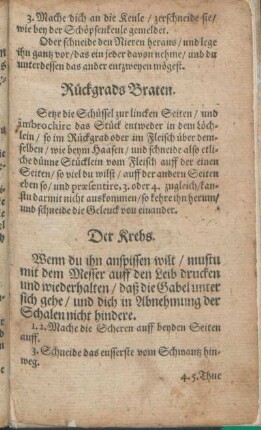 3. Mache dich an die Keule / zerschneide sie/
wie bey der Schöpsenkeule gemeldet.
Oder schneide den Nieren heraus / und lege
ihn gantz vor/das ein jeder davon nehme/ und du
unterdessen das ander entzweyen mögest.
Rückgrads Braten.
Setze die Schüssel zur lincken Seiten / und
imbrochire das Stück entweder in dem löch-
lein / so im Rückgrad oder im Fleisch über dem-
selben / wie beym Haasen / und schneide also etli-
che dünne Stücklein vom Fleisch auff der einen
Seiten / so viel du wilst / auff der andern Seiten
eben so / und præsentire, 3. oder 4. zugleich/kan-
stu darmit nicht auskommen / so kehre ihn herum/
und schneide die Geleuck von einander.
Der Krebs.
Wenn du ihn anspissen wilt / mustu
mit dem Messer auff den Leib drucken
und wiederhalten / daß die Gabel unter
sich gehe / und dich in Abnehmung der
Schalen nicht hindere.
1. 2. Mache die Scheren auff beyden Seiten
auff.
3. Schneide das eusserste vom Schwantz hin-
weg.
4. 5. Thue